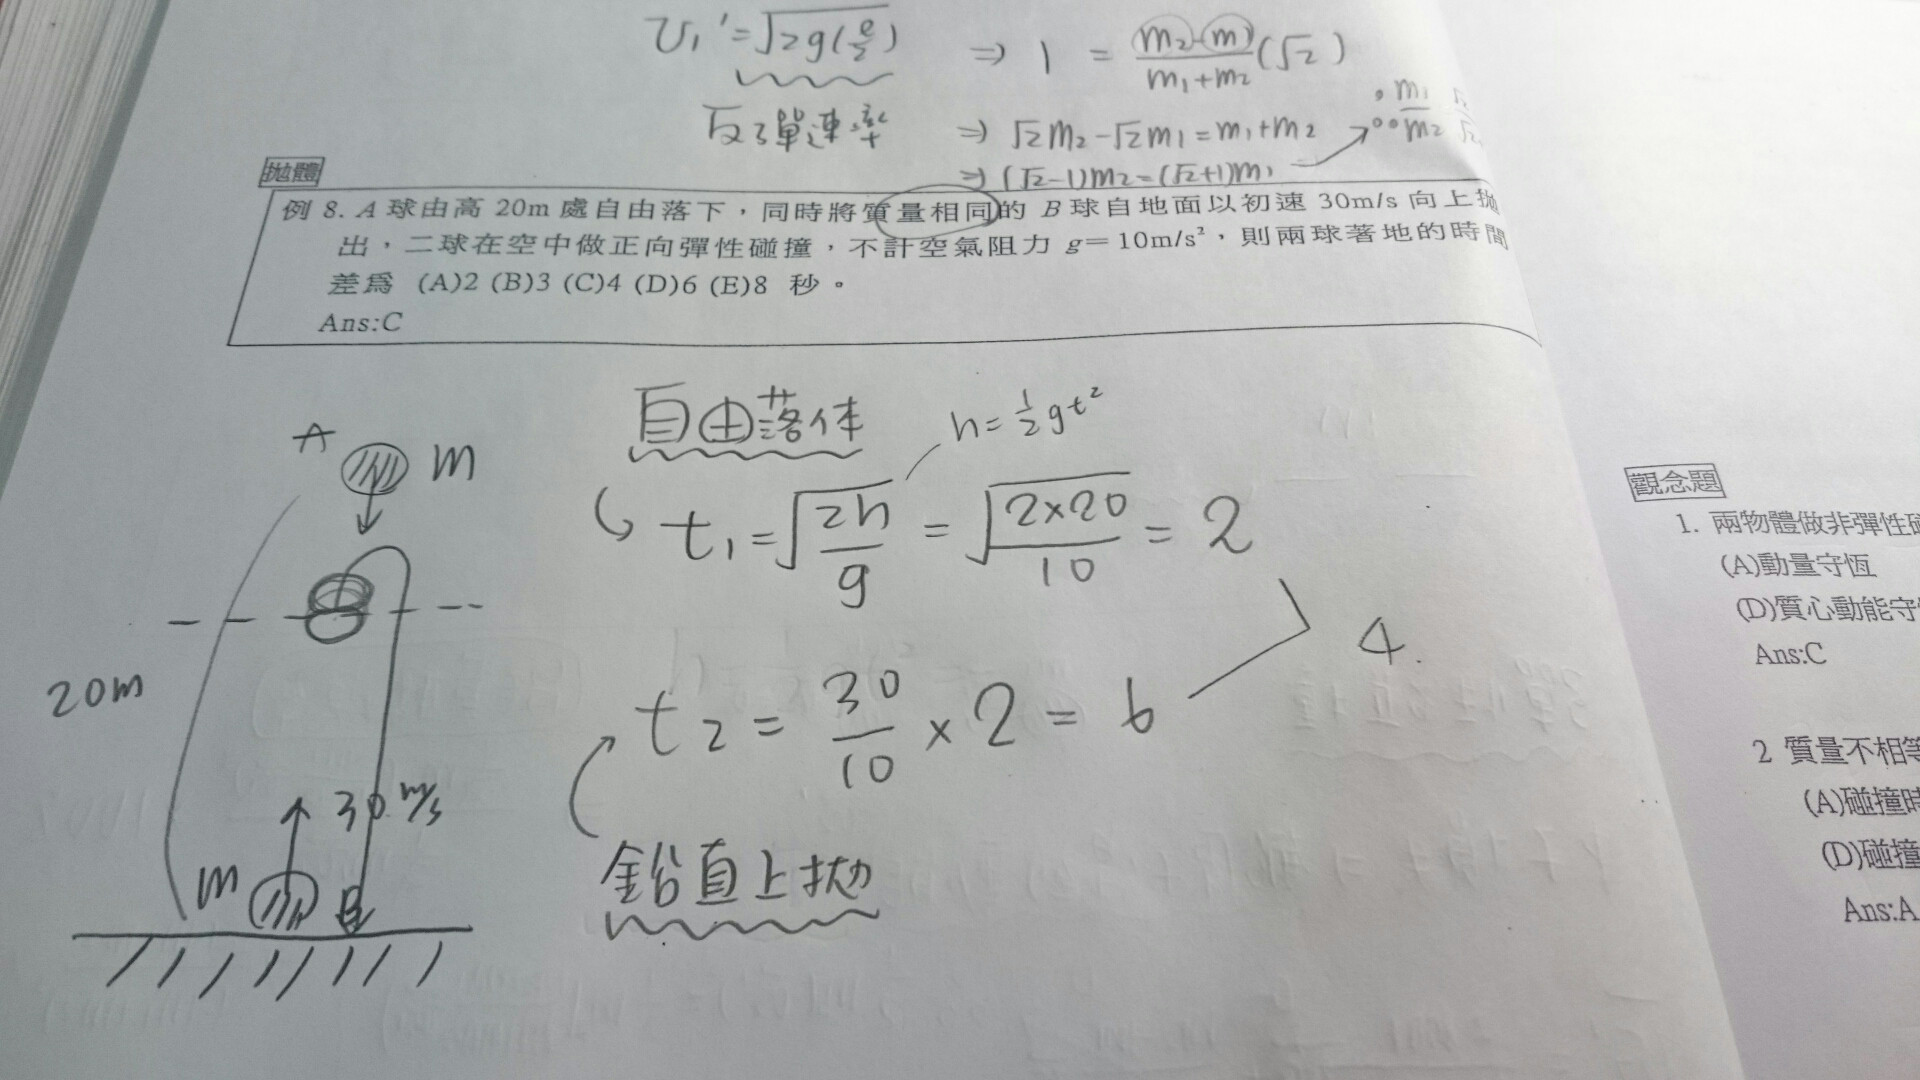 v₁' = √2g(ℓ/2) ⇒ 1 = (m₂-m₁)/(m₁+m₂) (√2)
反彈速率 ⇒ √2m₂-√2m₁=m₁+m₂
⇒ (√2-1)m₂=(√2+1)m₁
m₁/m₂
拋體
例 8. A 球由高 20m 處自由落下，同時將質量相同的 B 球自地面以初速 30m/s 向上拋
出，二球在空中做正向彈性碰撞，不計空氣阻力 g＝10m/s²，則兩球著地的時間
差爲 (A)2 (B)3 (C)4 (D)6 (E)8 秒。
Ans:C
自由落体
h=½gt²
t₁=√(2h/g) = √(2×20/10) = 2
t₂ = 30/10 × 2 = 6
4.
鉛直上拋
A
m
20m
30 m/s
m
B
觀念題
1. 兩物體做非彈性
(A)動量守恆
(D)質心動能守
Ans:C
2 質量不相等
(A)碰撞時
(D)碰撞
Ans:A